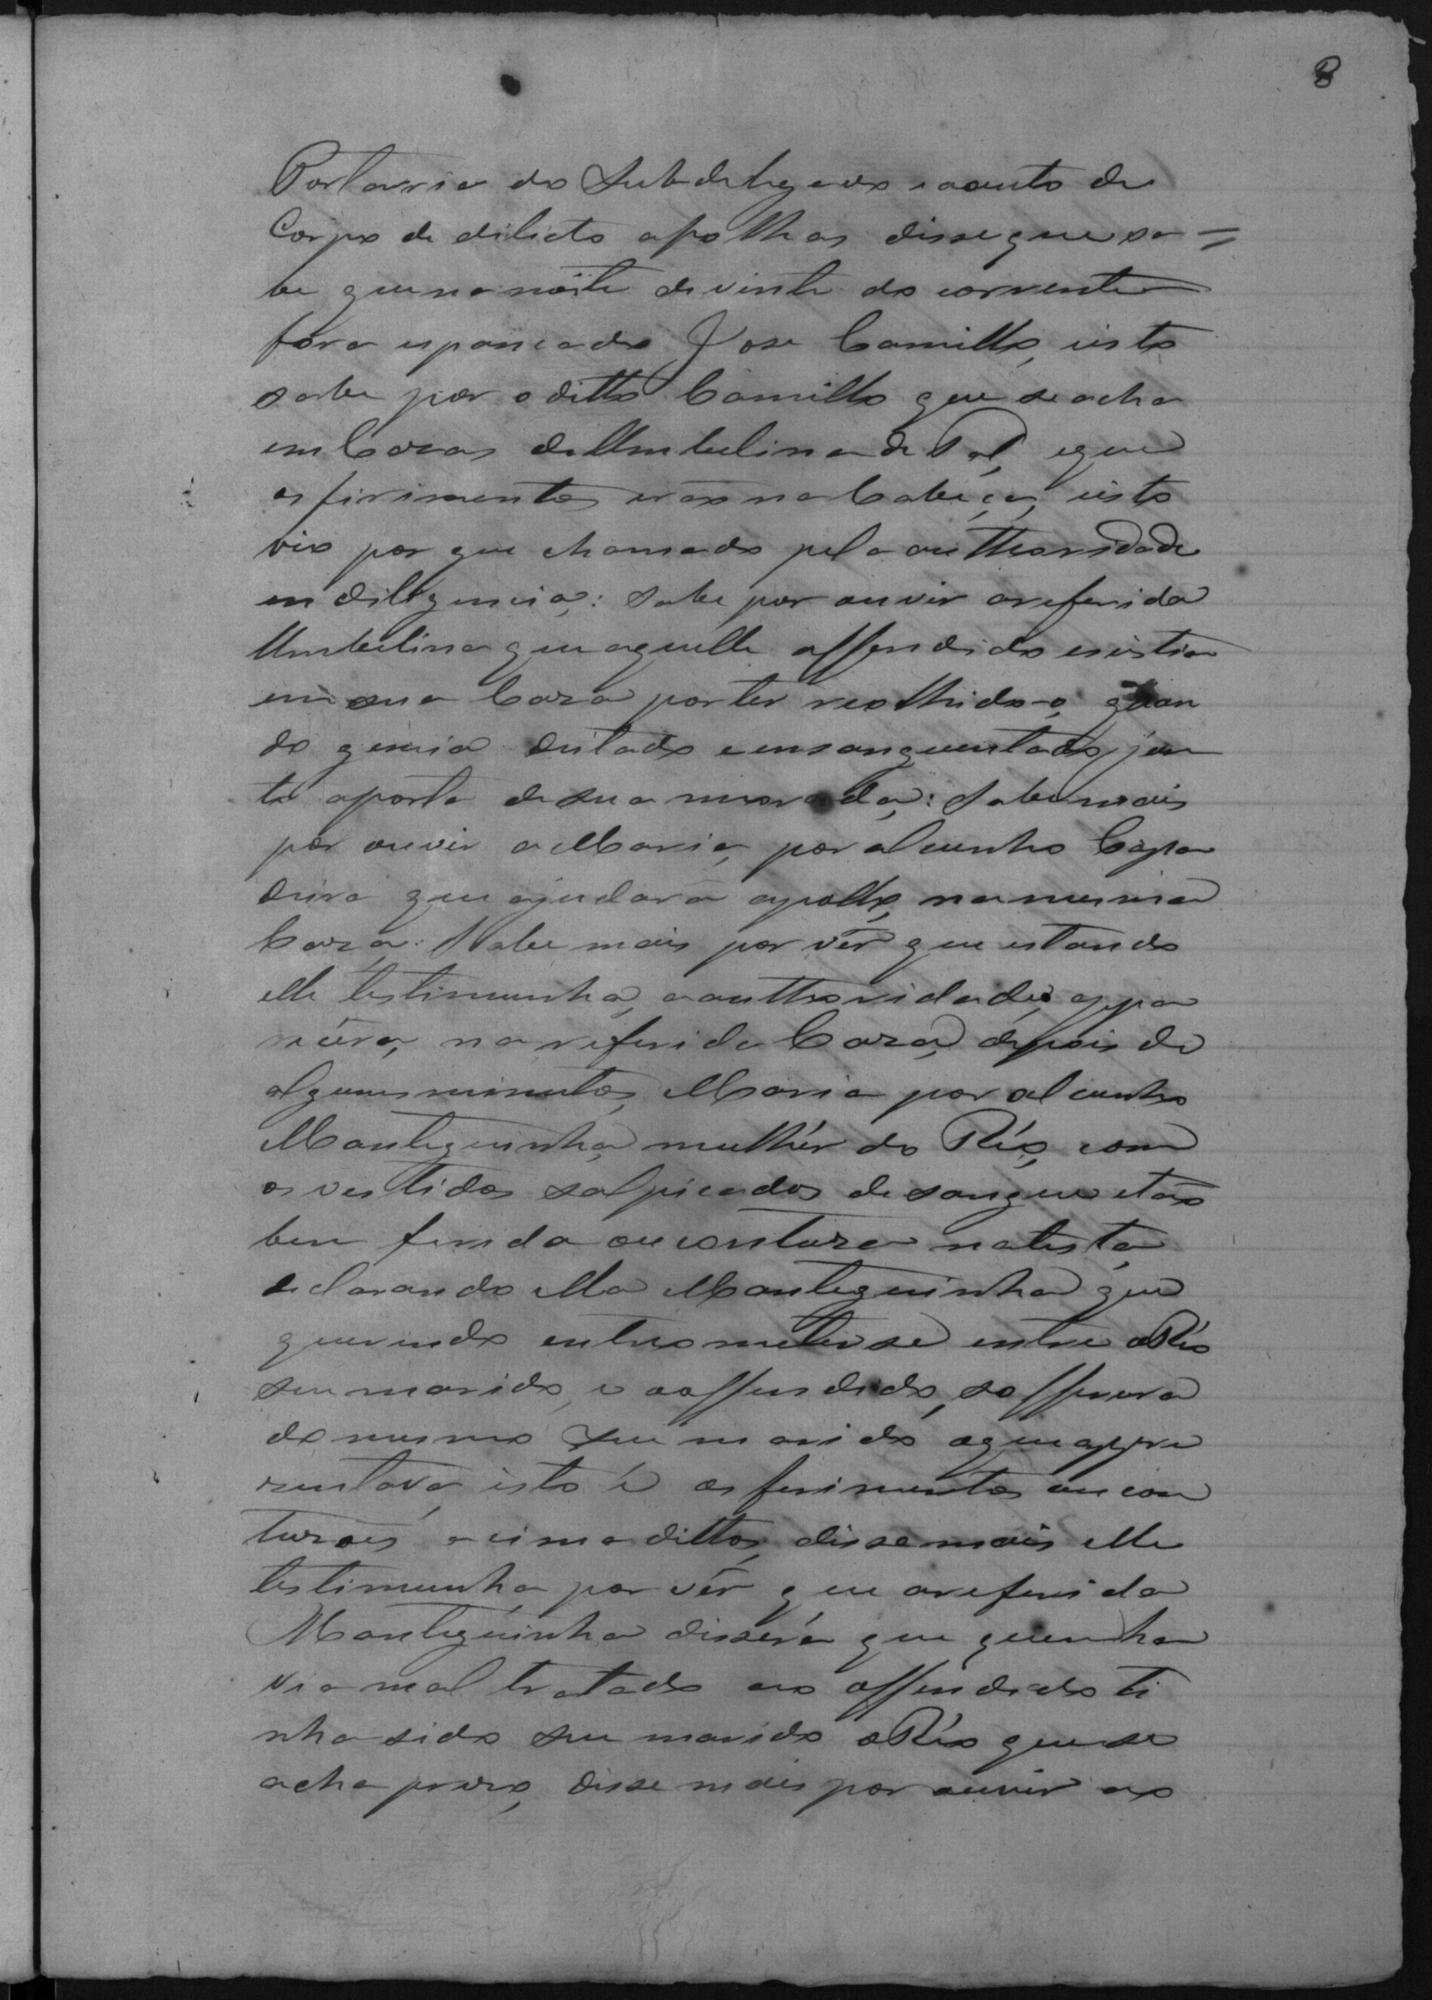 8
Portaria do Subdelegado e aauto de
Corpo de dilicto afolhas disse que sa=
be que na noite de vinte do corrente
fora espancado Jose Camillo, isto
sabe por o ditto Camillo que se acha
em Cazas de Umbelina de tal, e que
os firimentos erão na Cabeça, isto
vio por que chamado pela authoridade
em diligencia: Sabe por ouvir a referida
Umbelina que aquelle offendido existia
em sua Caza por ter recolhido-o, quan
do gemia deitado e ensanguentado, jun
to aporta de sua morada: Sabe mais
por ouvir a Maria, por alcunho
que ajudara apollo, na mesma
Caza: Sabe mais por vêr que estando
elle testimunha, a authoridade, appa
recêra, na referida Caza, depois de
alguns minutos, Maria por alcunho
Manteguinha, mulhér do Réo, com
os vestidos salpicados de sangue e tão
bem ferida ou contuza na testa,
declarando ella Manteguinha que
querendo entrometer se entre o Réo
seu marido, e o offendido, soffrera
do mesmo seu marido o que appre
zentava, isto é os ferimentos ou con
tuzoes acima dittos, disse mais elle
testimunha, por vêr que a referida
Manteguinha dissera que quem ha
via mal tratado ao offendido ti
nha sido seu marido o Réo que se
acha prezo, disse mais por ouvir ao